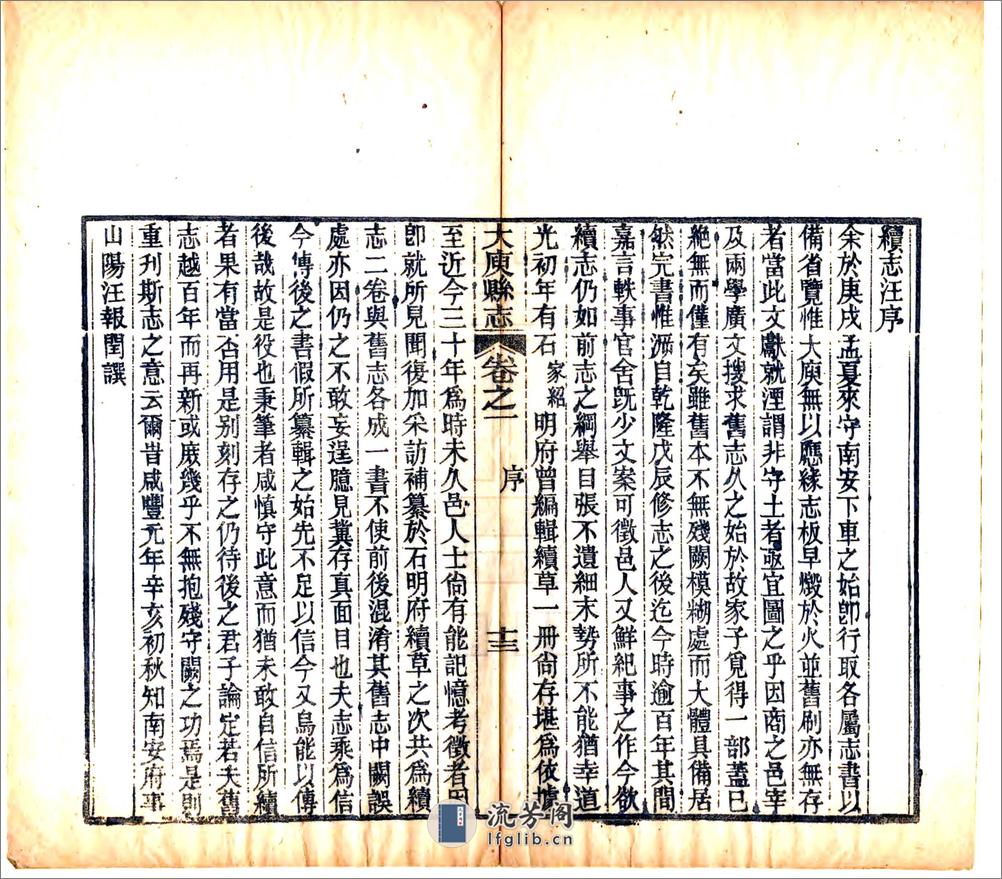 續志汪序
余於庚戌孟夏來守南安下車之始卽行取各屬志書以
備省覽惟大庾無以應緣志板早燬於火並舊刷亦無存
者當此文獻就湮謂非守土者亟宜圖之乎因商之邑宰
及兩學廣文搜求舊志久之始於故家子覓得一部蓋已
絕無而僅有矣雖舊本不無殘闕模糊處而大體具備居
然完書惟溯自乾隆戊辰修志之後迄今時逾百年其間
嘉言軼事官舍旣少文案可徵邑人又鮮紀事之作今欲
續志仍如前志之綱舉目張不遺細末勢所不能猶幸道
光初年有石家紹明府曾編輯續草一冊尙存堪爲依據
大庾縣志 卷之一 序 十三
至近今三十年爲時未久邑人士尙有能記憶考徵者因
卽就所見聞復加采訪補纂於石明府續草之次共爲續
志二卷與舊志各成一書不使前後混淆其舊志中闕誤
處亦因仍之不敢妄逞臆見冀存真面目也夫志乘爲信
今傳後之書假所纂輯之始先不足以信今又烏能以傳
後哉故是役也秉筆者咸愼守此意而猶未敢自信所續
者果有當否用是別刻存之仍待後之君子論定若夫舊
志越百年而再新或庶幾乎不無抱殘守闕之功焉是則
重刊斯志之意云爾旹咸豐元年辛亥初秋知南安府事
山陽汪報閏譔
流芳阁
lfglib.cn